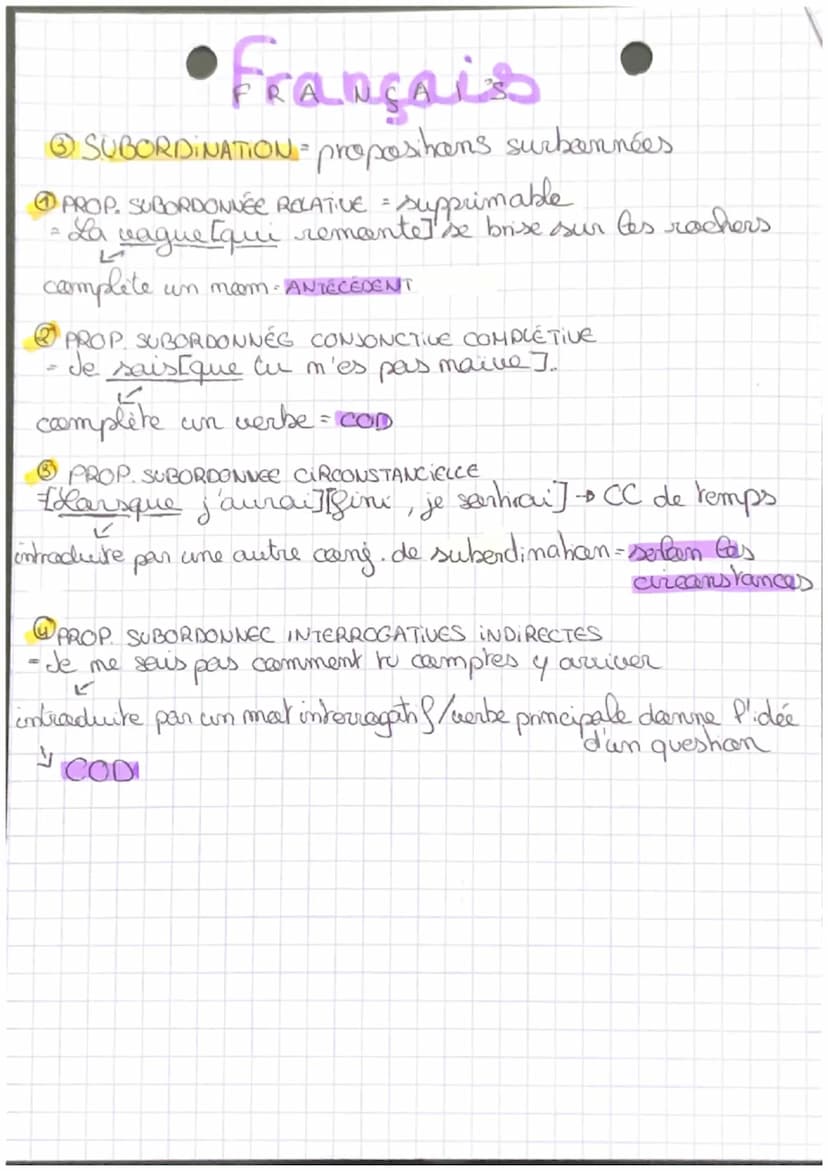 Français
FRANÇAIS
③ SUBORDINATION = propositions surbonnées
① PROP. SUBORDONNÉE RELATIVE = supprimable
= La vague [qui remonte] se brise sur les rochers
complète un nom = ANTÉCÉDENT
② PROP. SUBORDONNÉE CONJONCTIVE COMPLÉTIVE
- Je sais [que tu n'es pas naïve].
complète un verbe = COD
③ PROP. SUBORDONNEE CIRCONSTANCIELLE
[Lorsque j'aurai][fini, je sortirai] → CC de temps
introduite par une autre conj. de subordination = selon les
circonstances
④ PROP. SUBORDONNEE INTERROGATIVES INDIRECTES
- Je ne sais pas comment tu comptes y arriver
introduite par un mot interrogatif/verbe principale donne l'idée
d'un question
↘ COD